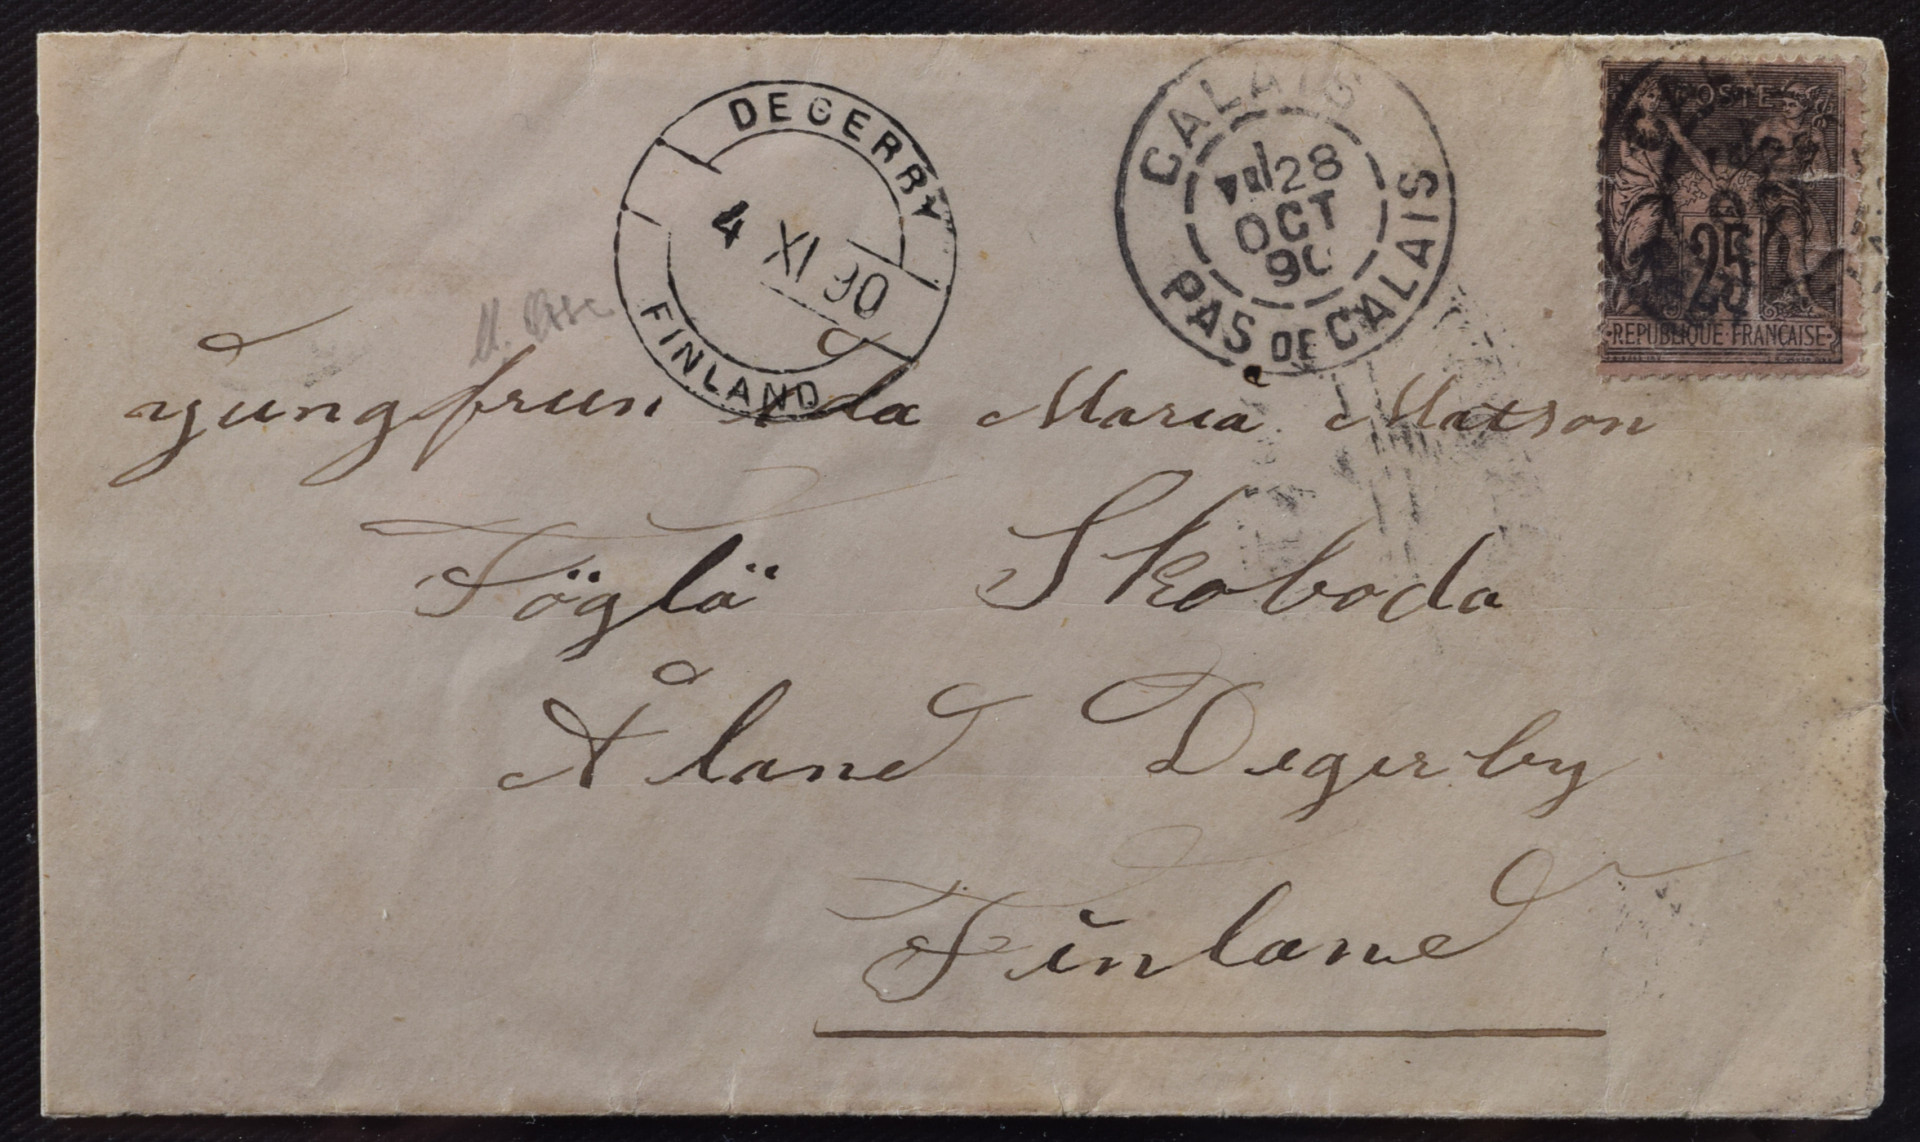 DEGERBY
4 XI 90
FINLAND
CALAIS
28
OCT
90
PAS DE CALAIS
POSTE
25
REPUBLIQUE FRANÇAISE
Jungfrun Ida Maria Matson
Föglä Skoboda
Åland Degerby
Finland